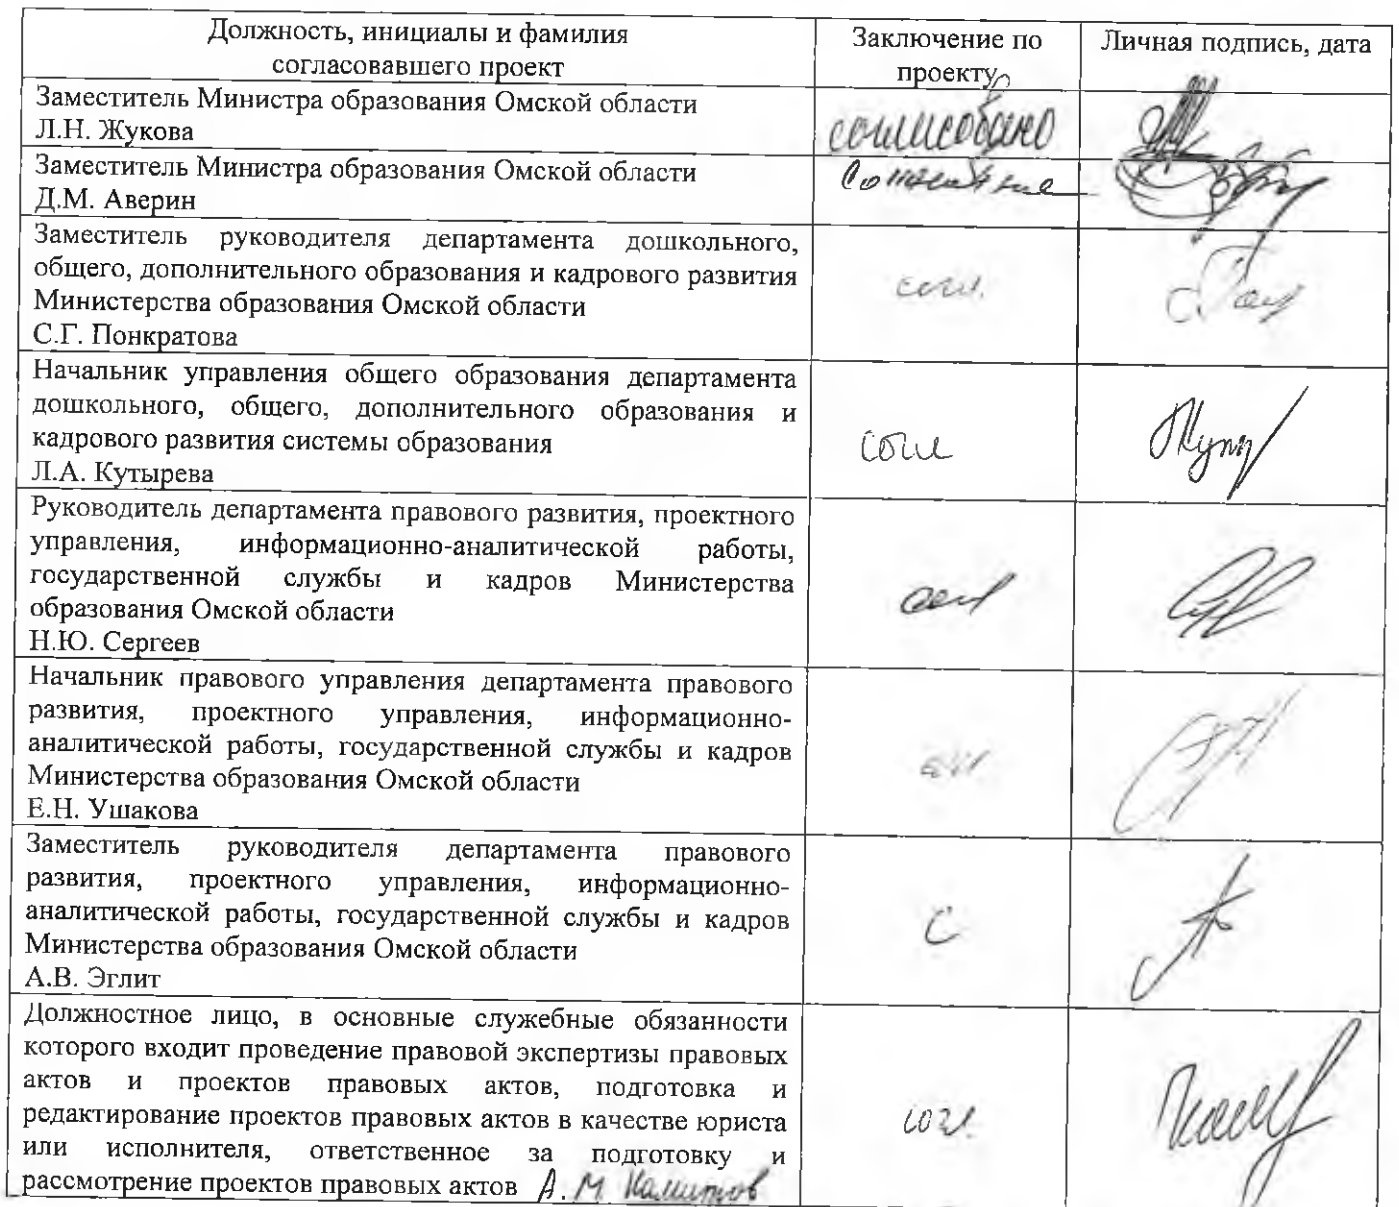 Должность, инициалы и фамилия
согласовавшего проект
Заключение по
проекту
Личная подпись, дата
Заместитель Министра образования Омской области
Л.Н. Жукова
согласовано
Заместитель Министра образования Омской области
Д.М. Аверин
Заместитель руководителя департамента дошкольного,
общего, дополнительного образования и кадрового развития
Министерства образования Омской области
С.Г. Понкратова
согл.
Начальник управления общего образования департамента
дошкольного, общего, дополнительного образования и
кадрового развития системы образования
Л.А. Кутырева
согл
Руководитель департамента правового развития, проектного
управления, информационно-аналитической работы,
государственной службы и кадров Министерства
образования Омской области
Н.Ю. Сергеев
Начальник правового управления департамента правового
развития, проектного управления, информационно-
аналитической работы, государственной службы и кадров
Министерства образования Омской области
Е.Н. Ушакова
Заместитель руководителя департамента правового
развития, проектного управления, информационно-
аналитической работы, государственной службы и кадров
Министерства образования Омской области
А.В. Эглит
С
Должностное лицо, в основные служебные обязанности
которого входит проведение правовой экспертизы правовых
актов и проектов правовых актов, подготовка и
редактирование проектов правовых актов в качестве юриста
или исполнителя, ответственное за подготовку и
рассмотрение проектов правовых актов А.М.
согл.